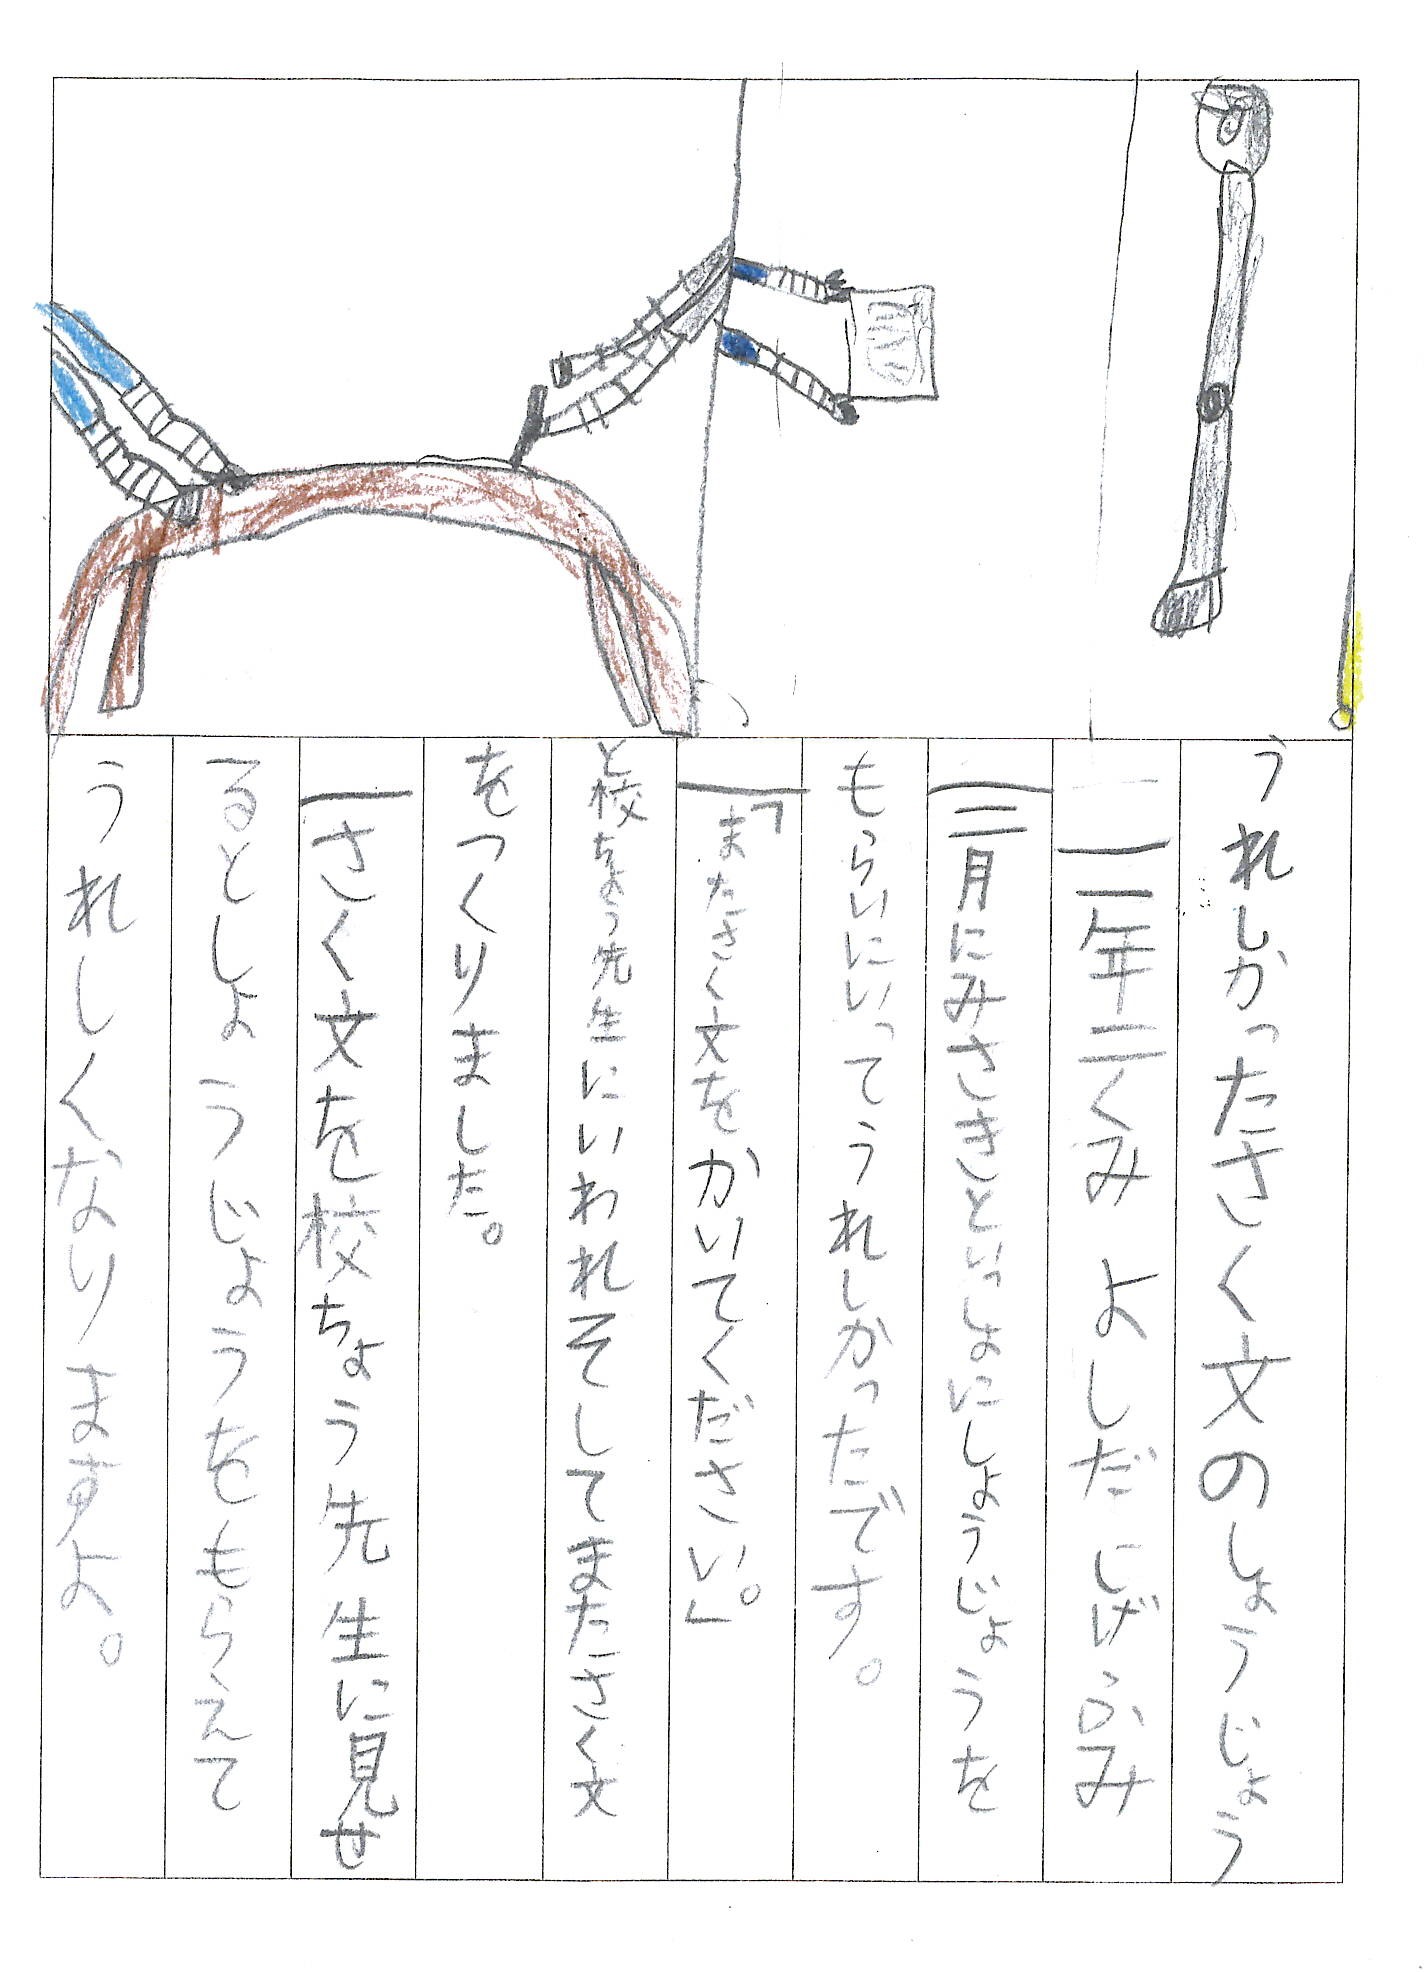 うれしかったさく文のしょうじょう
一年二くみ よしだ しげふみ
三月にみさきといっしょにしょうじょうを
もらいにいってうれしかったです。
「またさく文をかいてください。」
と校ちょう先生にいわれそしてまたさく文
をつくりました。
さく文を校ちょう先生に見せ
るとしょうじょうをもらえて
うれしくなりますよ。